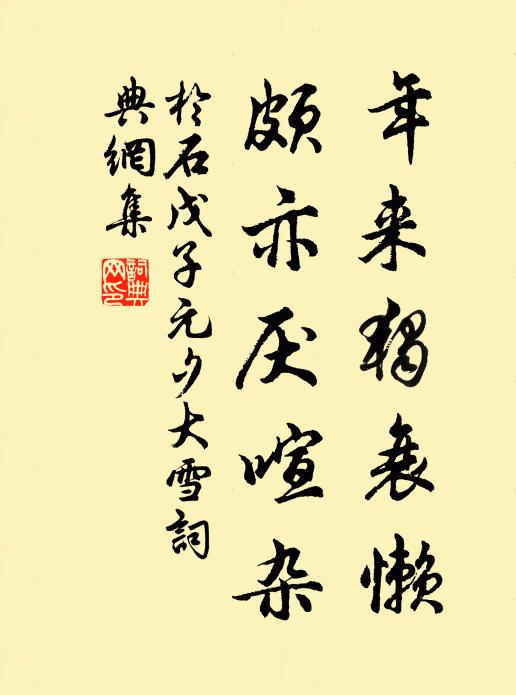 年来独衰懒
颇亦厌喧杂
於石戊子元夕大雪詞
典網集
詞典网印